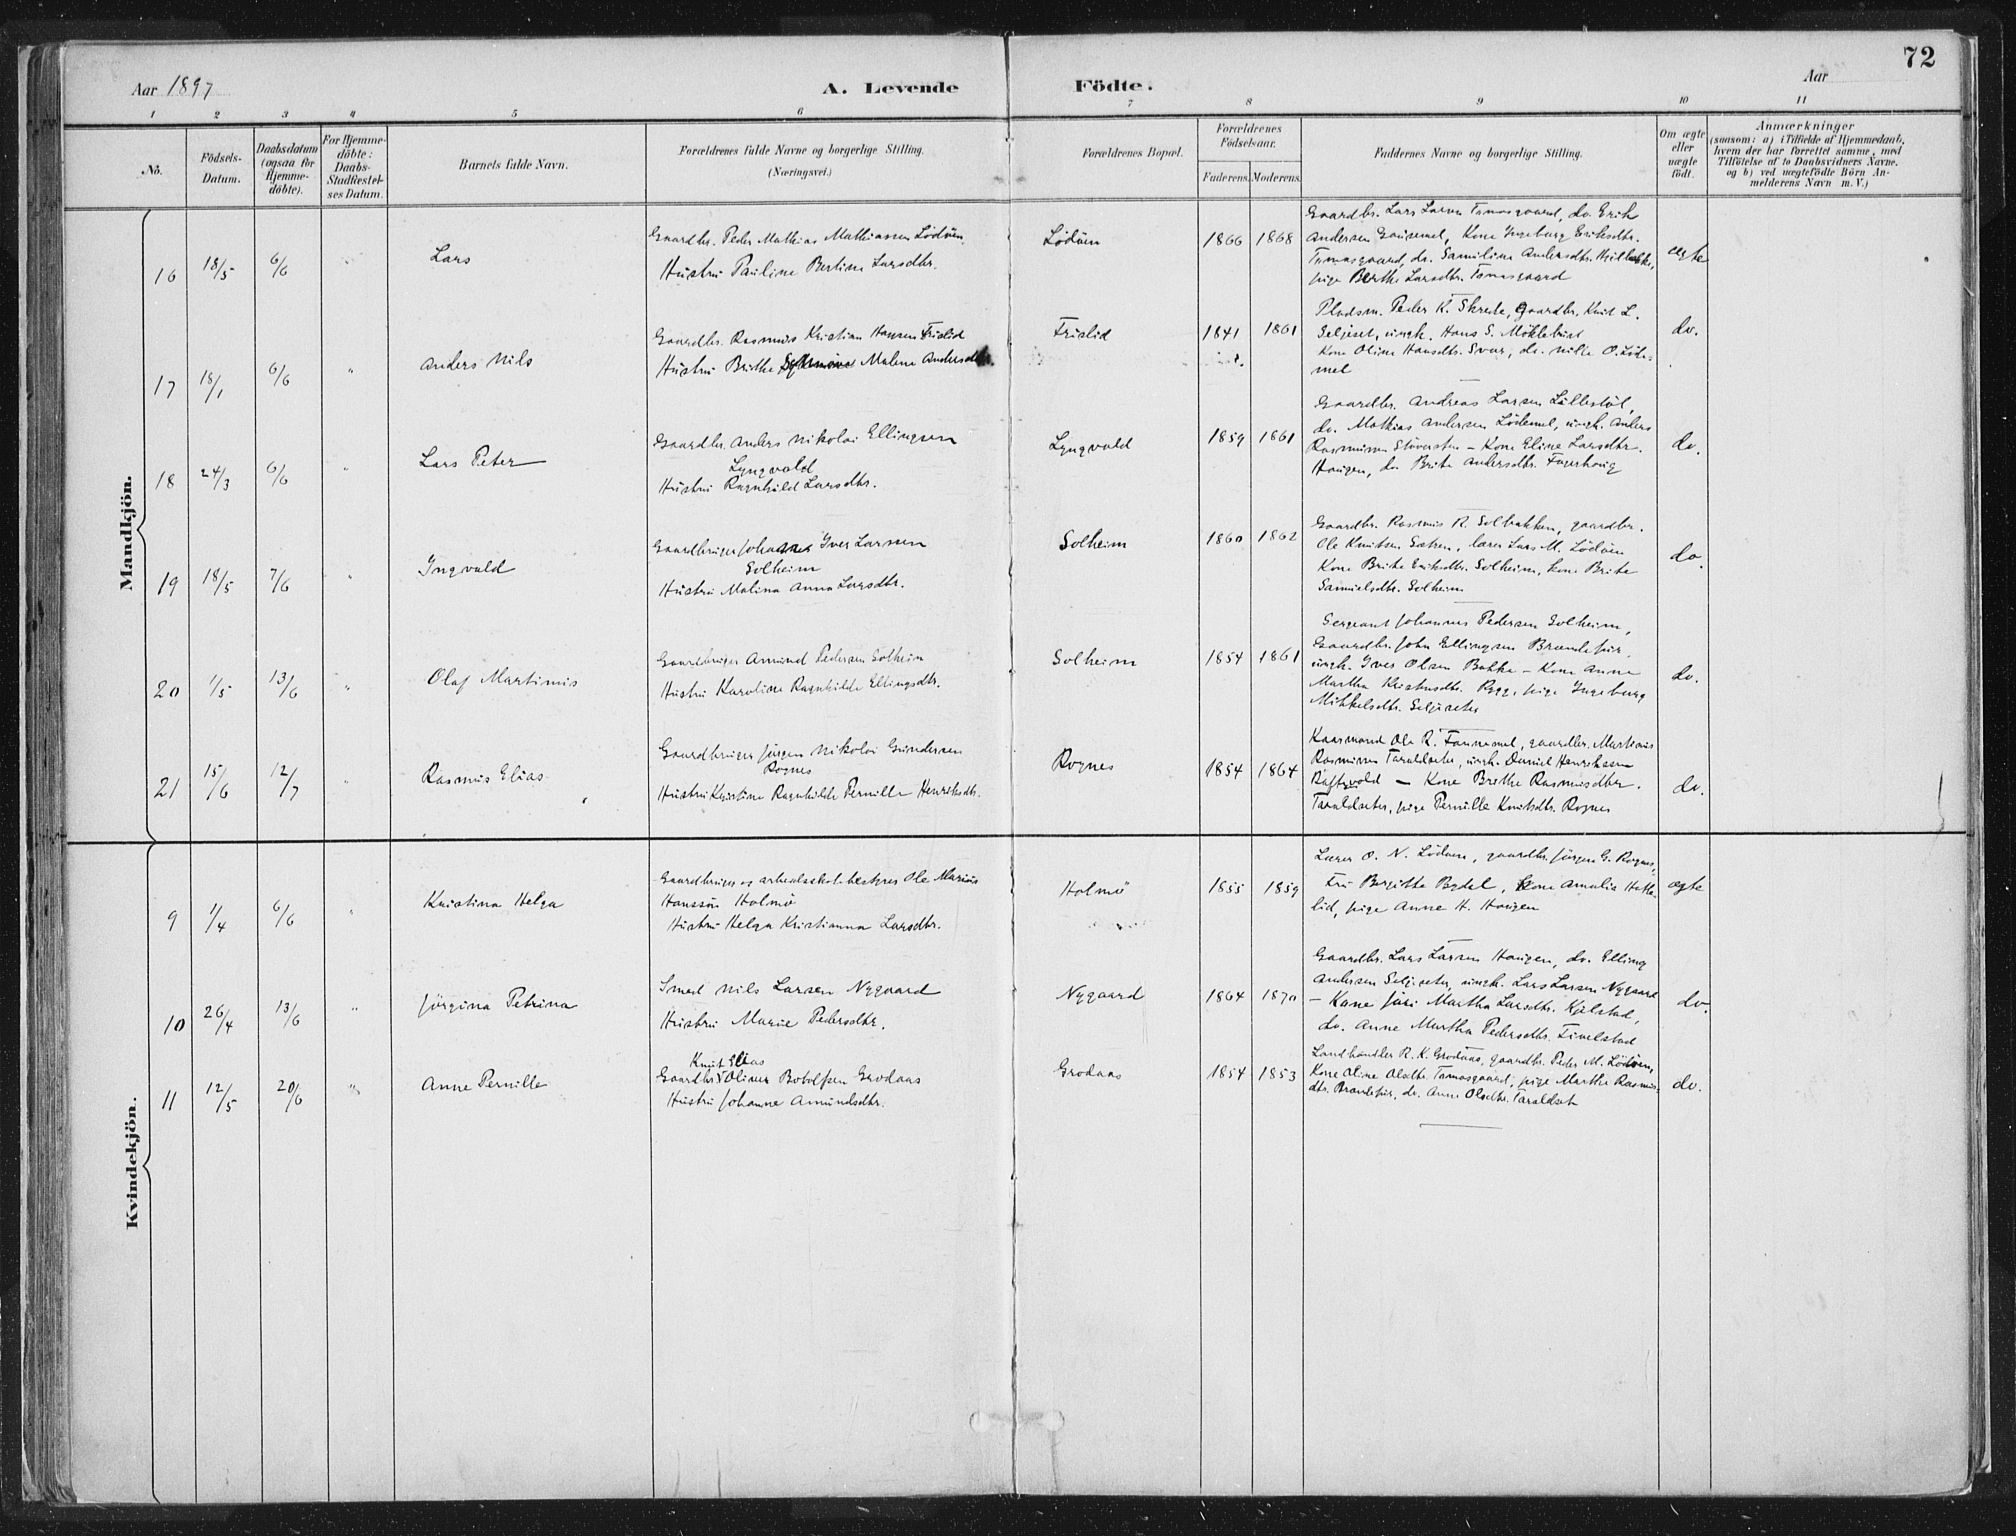 72
Aar 1897
A. Levende Födte.
Aar
1 2 3 4 5 6 7 8 9 10 11
No.
Födsels-Datum.
Daabsdatum (ogsaa för Hjemme-döbte).
For Hjemme-döbte: Daabs-Stadfæstel-ses Datum.
Barnets fulde Navn.
Forældrenes fulde Navne og borgerlige Stilling.
(Næringsvei.)
Forældrenes Bopæl.
Forældrenes Födselsaar.
Faderens. Moderens.
Faddernes Navne og borgerlige Stilling.
Om ægte eller uægte födt.
Anmærkninger
(saasom: a) i Tilfælde af Hjemmedaab,
hvem der har forrettet samme, med
Tilföielse af to Daabsvidners Navne,
og b) ved uægtefödte Börn An-
melderens Navn m. V.)
Mandkjön.
16 18/5 6/6 " Lars
Gaardbr. Peder Mathias Mathiassen Lödöen
Hustru Pauline Bertine Larsdtr.
Lödöen 1866 1868
Gaardbr. Lars Larsen Tomasgaard, do. Erik
Andersen Gausemel, Kone Ingeborg Eriksdtr.
Tomasgaard, do. Samuline Andersdtr.
pige Berthe Larsdtr. Tomasgaard
ægte
17 18/1 6/6 " Anders Nils
Gaardbr. Rasmus Kristian Hansen Frislid
Hustru Brithe Malene Andersdtr.
Frislid 1841 1861
Pladsm. Peder K. Skrede, Gaardbr. Knut L.
Seljeset, ungk. Hans S. Möklebust
Kone Oline Hansdtr. do. O. Löde-
mel
do.
18 24/3 6/6 " Lars Peter
Gaardbr. Anders Nikolai Ellingsen
Lyngvold
Hustru Ragnhild Larsdtr.
Lyngvold 1859 1861
Gaardbr. Andreas Larsen Lillestöl,
do. Mathias Andersen Lödemel, ungk. Anders
Rasmusen – Kone Eline Larsdtr.
Haugen, do. Brite Andersdtr. Fagerhoug
do.
19 18/5 7/6 " Ingvald
Gaardbruger Johannes Iver Larsen
Solheim
Hustru Malina Anna Larsdtr.
Solheim 1860 1862
Gaardbr. Rasmus R. Solbakken, gaardbr.
Ole Knutsen lærer Lars M. Lödöen
Kone Brite Eriksdtr. Solheim, kone Brite
Samuelsdtr. Solheim
do.
20 1/5 13/6 " Olaf Martinus
Gaardbruger Amund Pedersen Solheim
Hustru Karoline Ragnhilde Ellingsdtr.
Solheim 1854 1861
Sergeant Johannes Pedersen Solheim,
Gaardbr. John Ellingsen Brendefur,
ungk. Iver Olsen Bakke – Kone Anne
Martha Rygg, pige Ingeborg
Mikkelsdtr. Seljeseter
do.
21 15/6 12/7 " Rasmus Elias
Gaardbruger Jörgen Nikolai Gundersen
Rognes
Hustru Kristine Ragnhilde Pernille Henriksdtr.
Rognes 1854 1864
Ole R. Tannemel, gaardbr. Martinus
Rasmusen Taraldseter, ungk. Daniel Henriksen
– Kone Brithe Rasmusdtr.
Taraldseter, pige Pernille Knutsdtr. Rognes
do.
Kvindekjön.
9 1/4 6/6 " Kristina Helga
Gaardbruger og arbeidsskolebestyrer Ole Marius
Hansson Holmö
Hustru Helga Kristianna Larsdtr.
Holmö 1855 1859
Lærer O. N. Lödöen, gaardbr. Jörgen G. Rognes,
Fru Birgitte Bydel, Kone Amalie Hatle-
lid, pige Anne H. Haugen
ægte
10 26/4 13/6 " Jörgina Petrina
Smed Nils Larsen Nygaard
Hustru Marie Pedersdtr.
Nygaard 1864 1870
Gaardbr. Lars Larsen Haugen, do. Elling
Andersen Seljeseter, ungk. Lars Larsen Nygaard
– Kone Martha Larsdtr. Kjelstad,
do. Anne Martha Pedersdtr. Fivelstad
do.
11 12/5 20/6 " Anne Pernille
Knut Elias
Gaardbr. Oliver Botolfsen Grodaas
Hustru Johanne Amundsdtr.
Grodaas 1854 1853
Landhandler R. K. Grodaas, gaardbr. Peder M. Lödöen,
Kone Oline Olsdtr. Tomasgaard, pige Marthe Rasmus-
dtr. Brendefur, do. Anne Olsdtr. Taraldset
do.